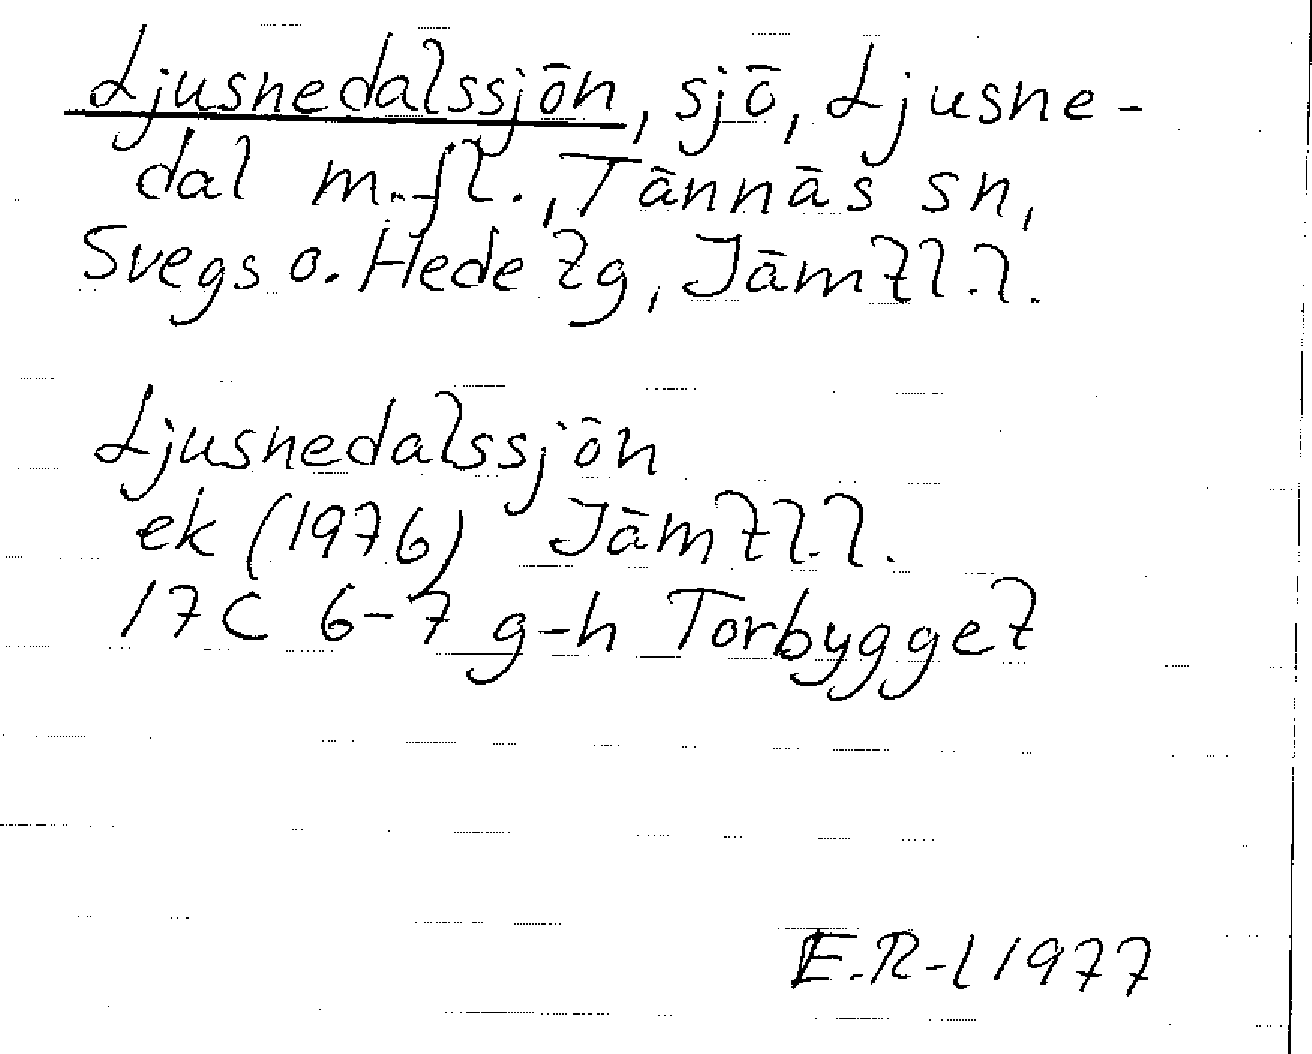 Ljusnedalssjön, sjö, Ljusne-
dal m.fl., Tännäs sn,
Svegs o. Hede tg, Jämtl.l.
Ljusnedalssjön
ek (1976) Jämtl.l.
17C 6-7 g-h Torbygget
E.R-l 1977